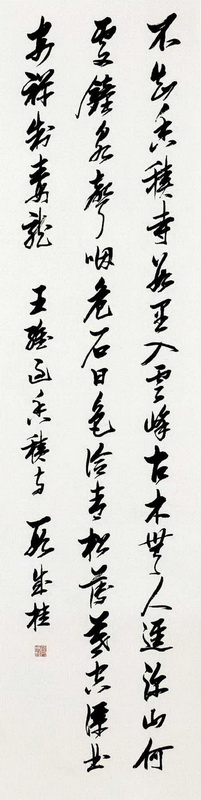 不知香積寺數里入雲峰古木無人逕深山何
處鐘泉聲咽危石日色冷青松薄暮空潭曲
安禪制毒龍 王維過香積寺 段成桂